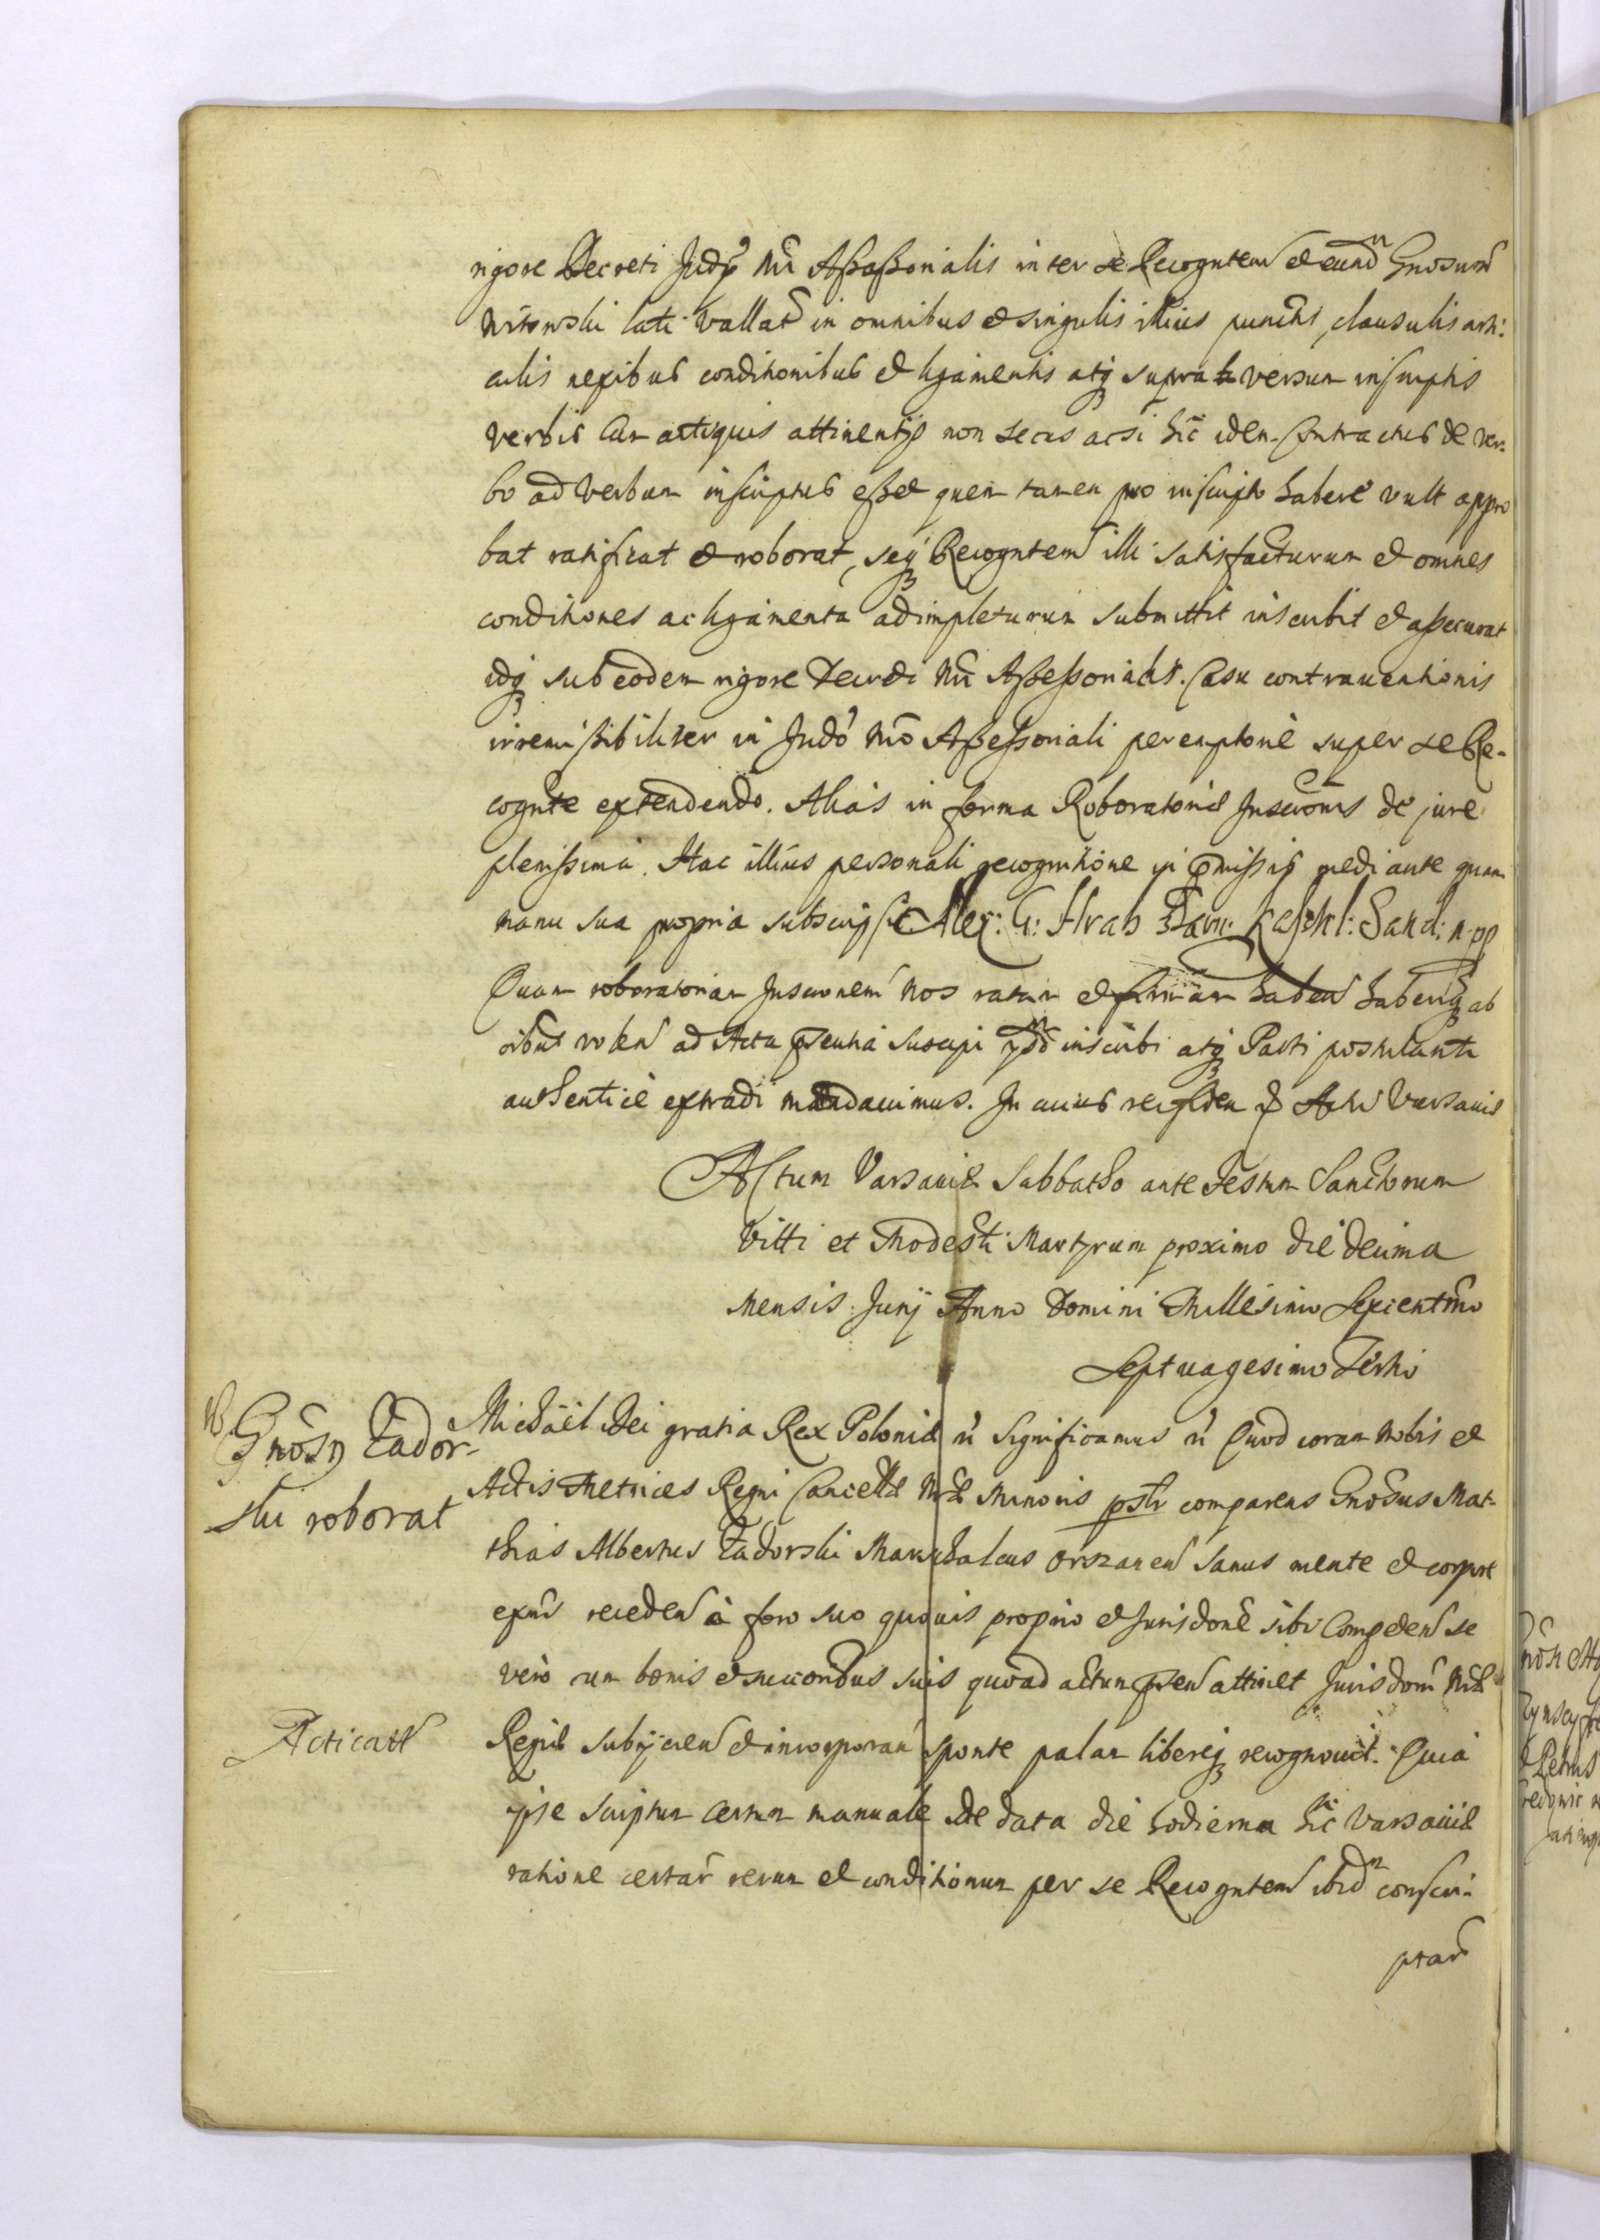 rigore Decreti Judÿ Nri Aßaßorialis inter se Recogntem et eund Gnosum
Witowski lati vallat in omnibus et singulis illius punctis, clausulis arti:
culis nexibus conditionibus et ligamentis atq supra versum inscriptis
verbis cum attiguis attinentÿs non secus acsi hic idem Contractus de ver:
bo ad verbum inscriptus eßet quem tamen pro inscripto habere vult appro
bat ratificat et roborat, seq Recogntem illi satisfacturum et omnes
conditiones ac ligamenta adimpleturum submittit inscribit et aßecurat
idq sub eodem rigore Decreti Nri Aßeßorialis. Casu contraventionis
irremißibiliter in Judo Nro Aßeßoriali peremptorie super se Re-
cognte extendendo. Alias in forma Roboratoriæ Inscronis de jure
plenißima. Hac illius personali recognitione in præmißis mediante quam
manu sua propria subscripsit Alex: Hrab Sand: mpp
Quam roboratoriam Inscronem Nos ratam et firmam haben haberiq ab
oibus volen ad Acta præsentia suscipi inscribi atq Parti postulanti
authentice extradi mandavimus. In cuius rei fidem Actu Varsaviæ
Actum Varsaviæ Sabbatho ante Festum Sanctorum
Vitti et Modesti Martyrum proximo die decima
Mensis Junÿ Anno Domini Millesimo Sexcentmo
Septuagesimo Tertio
Gnosy Zador-
ski roborat
Michaël Dei gratia Rex Poloniæ Significamus Quod coram Nobis et
Actis Metrices Regni Cancellæ Nræ Minoris pslr comparens Gnosus Mat-
thias Albertus Zadorski Marschalcus Orszanen sanus mente et corpore
exns receden à foro suo quovis proprio et Jurisdone sibi Competen se
vero cum bonis et successoribus suis quoad actum præsen attinet Jurisdoni Nræ
Acticatt
Regiæ subÿcien et incorporan sponte palam libereq recognovit. Quia
ipse scriptum certum manuale de data die hodierna hic Varsaviæ
ratione certar rerum et conditionum per se Recogntem ibid conscri-
ptar